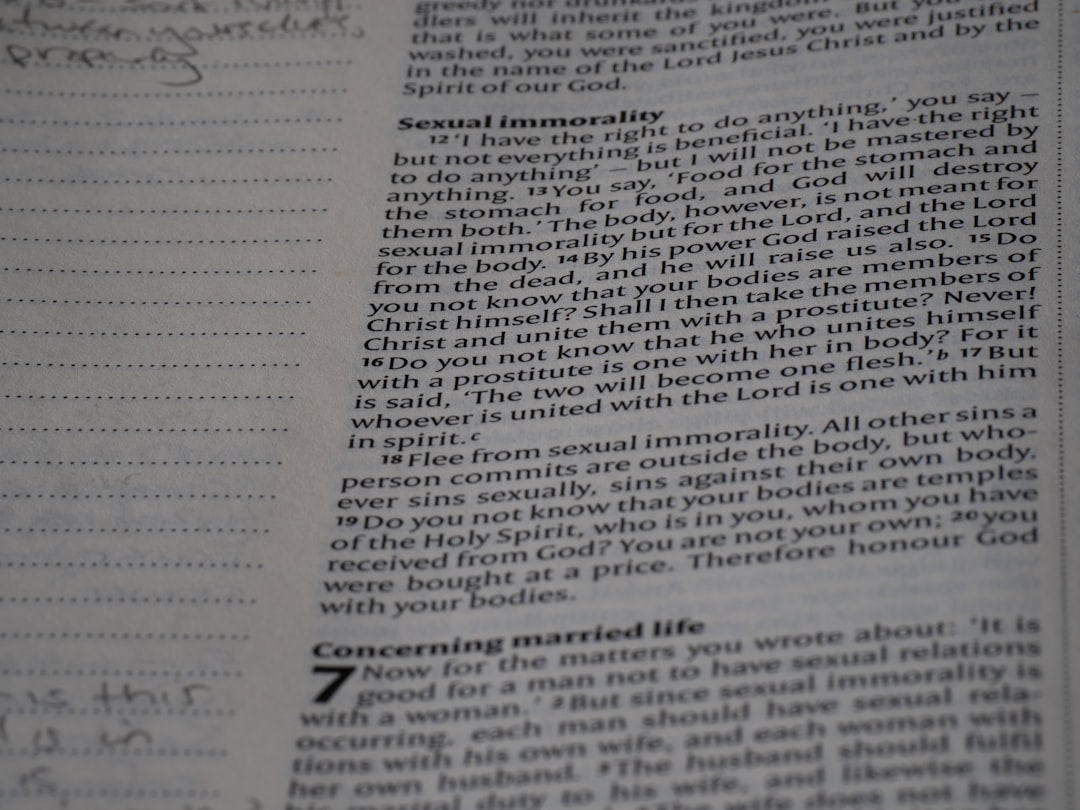 between yourselves,
properly
greedy nor drunkards
dlers will inherit the kingdom
that is what some of you were. But you
washed, you were sanctified, you were justified
in the name of the Lord Jesus Christ and by the
Spirit of our God.
Sexual immorality
12 ‘I have the right to do anything,’ you say –
but not everything is beneficial. ‘I have the right
to do anything’ – but I will not be mastered by
anything. 13 You say, ‘Food for the stomach and
the stomach for food, and God will destroy
them both.’ The body, however, is not meant for
sexual immorality but for the Lord, and the Lord
for the body. 14 By his power God raised the Lord
from the dead, and he will raise us also. 15 Do
you not know that your bodies are members of
Christ himself? Shall I then take the members of
Christ and unite them with a prostitute? Never!
16 Do you not know that he who unites himself
with a prostitute is one with her in body? For it
is said, ‘The two will become one flesh.’ b 17 But
whoever is united with the Lord is one with him
in spirit. c
18 Flee from sexual immorality. All other sins a
person commits are outside the body, but who-
ever sins sexually, sins against their own body.
19 Do you not know that your bodies are temples
of the Holy Spirit, who is in you, whom you have
received from God? You are not your own; 20 you
were bought at a price. Therefore honour God
with your bodies.
Concerning married life
7 Now for the matters you wrote about: ‘It is
good for a man not to have sexual relations
with a woman.’ 2 But since sexual immorality is
occurring, each man should have sexual rela-
tions with his own wife, and each woman with
her own husband. 3 The husband should fulfil
his marital duty to his wife, and likewise the
The wife does not have
is this
is in
is